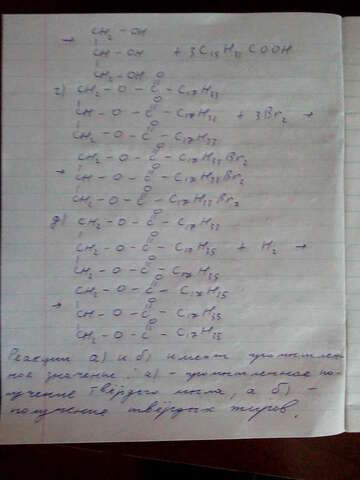 → CH₂ – OH
CH – OH + 3C₁₅H₃₁COOH
CH₂ – OH
г) CH₂ – O – C – C₁₇H₃₃
O
CH – O – C – C₁₇H₃₃ + 3Br₂ →
O
CH₂ – O – C – C₁₇H₃₃
O
CH₂ – O – C – C₁₇H₃₃Br₂
O
→ CH – O – C – C₁₇H₃₃Br₂
O
CH₂ – O – C – C₁₇H₃₃Br₂
O
д) CH₂ – O – C – C₁₇H₃₃
O
CH – O – C – C₁₇H₃₅ + H₂ →
O
CH₂ – O – C – C₁₇H₃₅
O
CH₂ – O – C – C₁₇H₃₅
O
→ CH – O – C – C₁₇H₃₅
O
CH₂ – O – C – C₁₇H₃₅
Реакции а) и б) имеют промышлен-
ное значение: а) – промышленное по-
лучение твёрдого мыла, а б) –
получение твёрдых жиров.